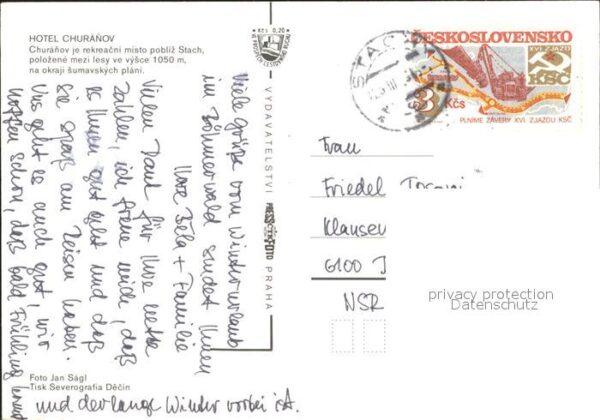 HOTEL CHURÁŇOV
Churáňov je rekreační místo poblíž Stach,
položené mezi lesy ve výšce 1050 m,
na okraji šumavských plání.
Kčs 0,20
VYDAVATELSTVÍ PRESSFOTO PRAHA
STACHY
ČESKOSLOVENSKO
XVI. ZJAZD
KSČ
3 Kčs
PLNÍME ZÁVERY XVI. ZJAZDU KSČ
Viele Grüße vom Winterurlaub
im Böhmerwald sendet Ihnen
Ihre Béla + Familie
Vielen Dank für Ihre nette
Zahlen, ich freue mich, daß
es Ihnen gut geht und daß
Sie Spaß am Reisen haben.
Uns geht es auch gut, wir
hoffen schon, daß bald Frühling kommt
und der lange Winter vorbei ist.
Frau
Friedel
Klausen
6100
NSR
privacy protection
Datenschutz
Foto Jan Ságl
Tisk Severografia Děčín